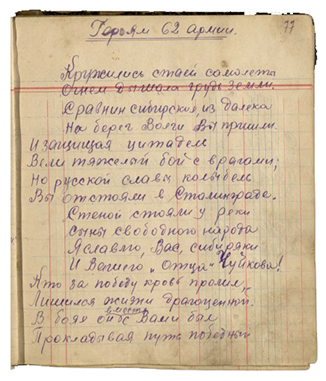 Героям 62 армии.
77
Кружились стаей самолеты
Огнем дышала грудь земли.
С равнин сибирских из далека
На берег Волги Вы пришли.
И защищая цитадель
Вели тяжелый бой с врагами;
Но русской славы колыбель
Вы отстояли в Сталинграде.
Стеной стояли у реки
Сыны свободного народа
Я славлю, Вас, сибиряки
И Вашего „Отца“ Чуйкова!
А кто за победу кровь пролил,
Лишился жизни драгоценной.
вместе
В боях с Вами был
Прокладывая путь победный